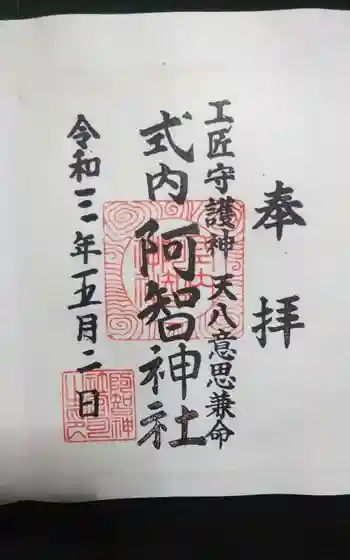 奉拝
工匠守護神 天八意思兼命
式内 阿智神社
令和三年五月二日